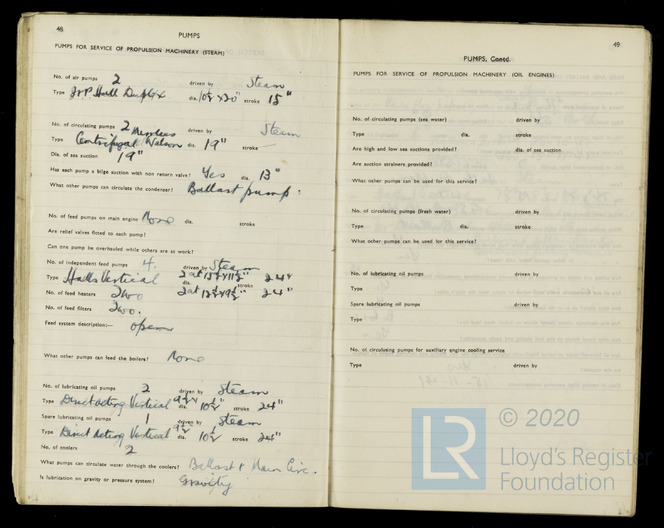 48
PUMPS
PUMPS FOR SERVICE OF PROPULSION MACHINERY (STEAM)
No. of air pumps 2 driven by Steam
Type J & P Hall Duplex dia. 10½ x 20" stroke 15"
No. of circulating pumps 2 driven by Steam
Type Centrifugal Watson dia. 19" stroke
Dia. of sea suction 19"
Has each pump a bilge suction with non return valve? Yes dia. 13"
What other pumps can circulate the condenser? Ballast pump.
No. of feed pumps on main engine None dia. stroke
Are relief valves fitted to each pump?
Can one pump be overhauled while others are at work?
No. of independent feed pumps 4. driven by Steam
Type Halls Vertical dia. 2 at stroke 24"
No. of feed heaters Two 2 at 24"
No. of feed filters Two.
Feed system description:— open
What other pumps can feed the boilers? None
No. of lubricating oil pumps 2 driven by Steam
Type Direct Acting Vertical dia. 10½" stroke 24"
Spare lubricating oil pumps 1 driven by Steam
Type Direct Acting Vertical dia. 10½ stroke 24"
No. of coolers 2
What pumps can circulate water through the coolers? Ballast & Main Circ.
Is lubrication on gravity or pressure system? Gravity
49
PUMPS, Contd.
PUMPS FOR SERVICE OF PROPULSION MACHINERY (OIL ENGINES)
No. of circulating pumps (sea water) driven by
Type dia. stroke
Are high and low sea suctions provided? dia. of sea suction
Are suction strainers provided?
What other pumps can be used for this service?
No. of circulating pumps (fresh water) driven by
Type dia. stroke
What other pumps can be used for this service?
No. of lubricating oil pumps driven by
Type
Spare lubricating oil pumps driven by
Type
No. of circulating pumps for auxiliary engine cooling service
Type driven by
LR
© 2020
Lloyd's Register
Foundation